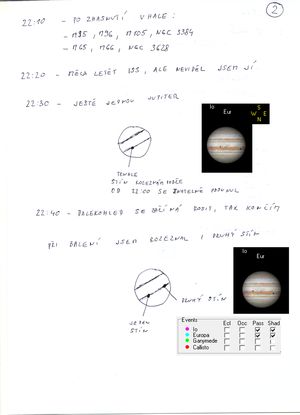 2
22:10 - PO ZHASNUTÍ V HALE:
- M95, M96, M105, NGC 3384
- M65, M66, NGC 3628
22:20 - MĚLA LETĚT ISS, ALE NEVIDĚL JSEM JÍ
22:30 - JEŠTĚ JEDNOU JUPITER
Io
Eur
S
W E
N
TENHLE
STÍN ROZEZNÁM
OD 22:00 SE ZNATELNĚ POSUNUL
22:40 - DALEKOHLED SE ZAČÍNÁ ROSIT, TAK KONČÍM
PŘI BALENÍ JSEM ROZEZNAL I DRUHÝ STÍN
Io
Eur
DRUHÝ STÍN
JEDEN
STÍN
Events
Ecl Occ Pass Shad
Io
Europa
Ganymede
Callisto